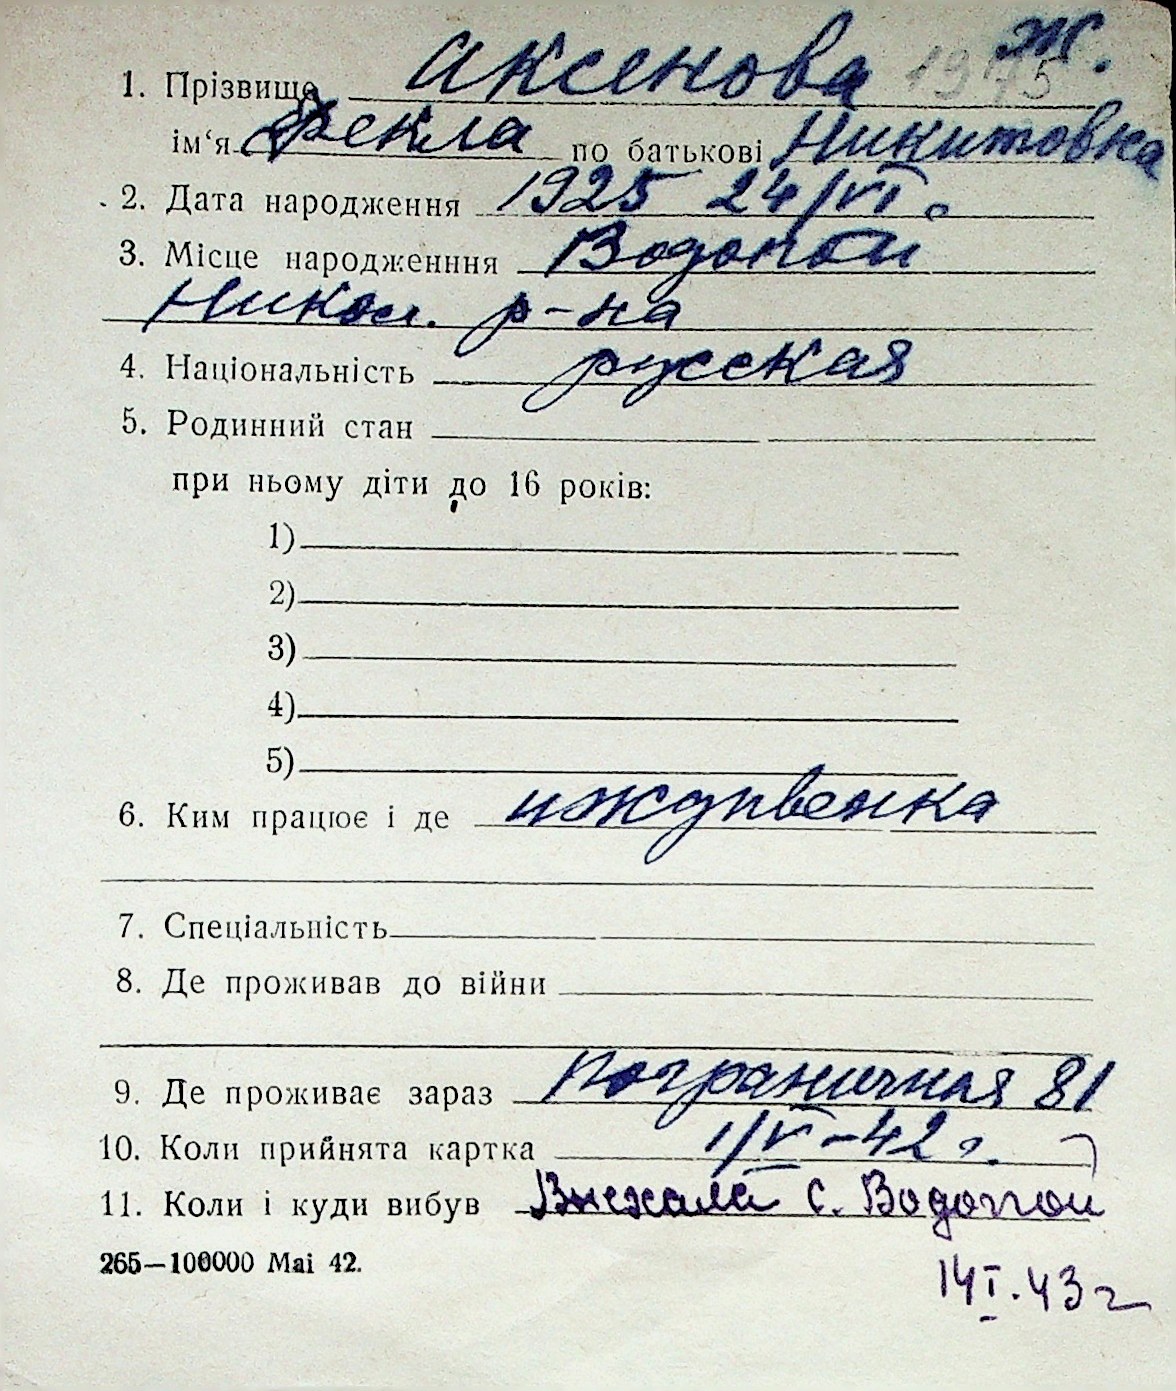 Ж.
1. Прізвище Аксенова 1975
ім‘я Фекла по батькові Никитовна
2. Дата народження 1925 24/VI г.
3. Місце народженння Водопой
Никол. р-на
4. Національність русская
5. Родинний стан
при ньому діти до 16 років:
1)
2)
3)
4)
5)
6. Ким працює і де иждивенка
7. Спеціальність
8. Де проживав до війни
9. Де проживає зараз Пограничная 81
10. Коли прийнята картка 1/VI-42 г.
11. Коли і куди вибув Выехала с. Водопой
265—100000 Mai 42.
14 I. 43 г